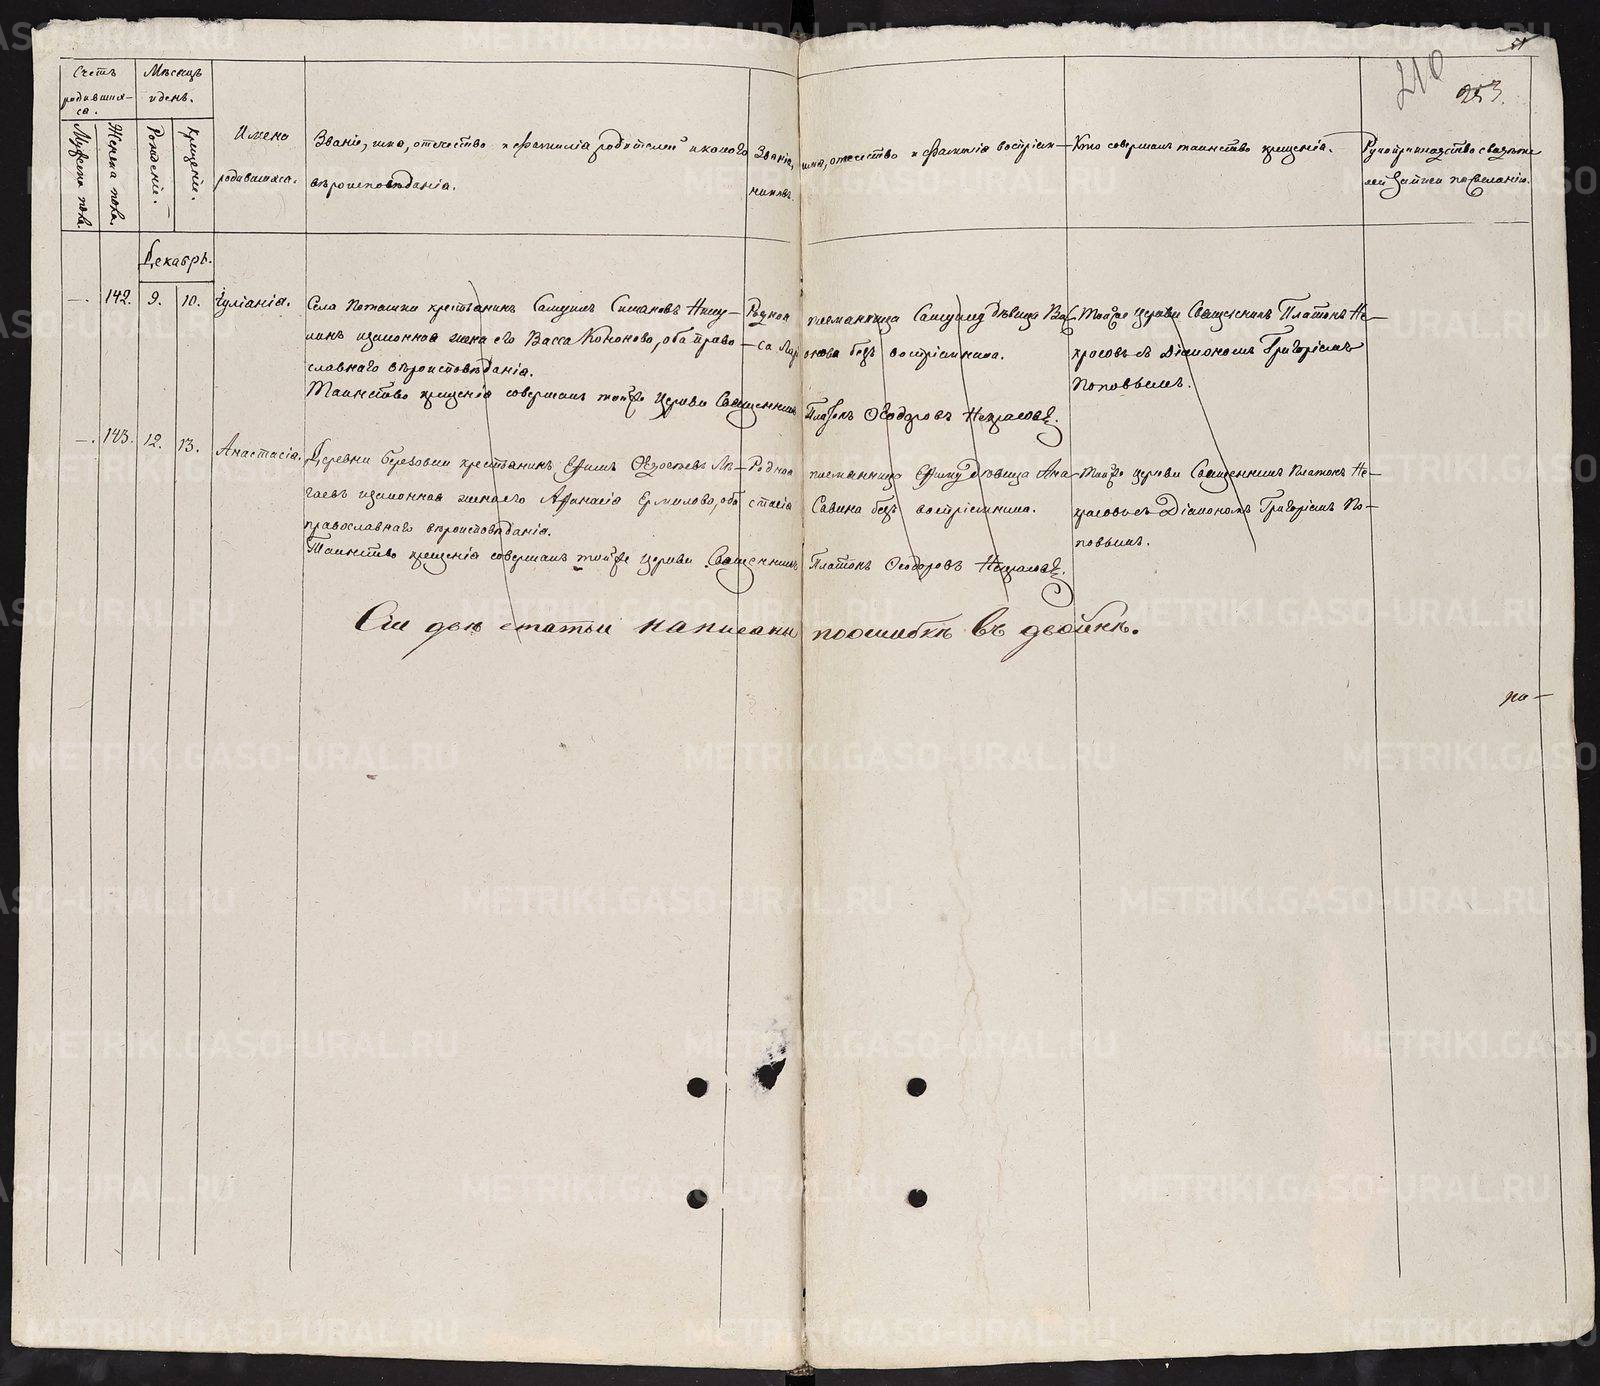 210
253.
Счетъ
родивших-
ся.
Мѣсяцъ
и день.
Мужеска пола.
Женска пола.
Рожденіе.
Крещеніе.
Имена
родившихся.
Званіе, имя, отчество и фамилія родителей и какого
вѣроисповѣданія.
Званіе, имя, отчество и фамилія воспріем-
никовъ.
Кто совершалъ таинство крещенія.
Рукоприкладство свидѣте
лей записи по желанію.
Декабрь.
—. 142. 9. 10. Іуліанія.
Села Поташки крестьянинъ Самуилъ Симановъ
законная жена его Васса Кононова, оба право-
славнаго вѣроисповѣданія.
Таинство крещенія совершалъ тойже церкви Священникъ Платонъ Ѳеодоровъ Некрасовъ.
Родная племянница Самуилу дѣвица Вас-
са безъ воспріемника.
Тойже церкви Священникъ Платонъ Не-
красовъ съ Діакономъ Григоріемъ
Поповымъ.
—. 143. 12. 13. Анастасія.
Деревни Березовки крестьянинъ Ефимъ
законная жена его Афанасія Ермилова, оба
православнаго вѣроисповѣданія.
Таинство крещенія совершалъ тойже церкви Священникъ Платонъ Ѳеодоровъ Некрасовъ.
Родная племянница Ефиму дѣвица Ана-
стасія Савина безъ воспріемника.
Тойже церкви Священникъ Платонъ Не-
красовъ съ Діакономъ Григоріемъ По-
повымъ.
Сіи двѣ статьи написаны поошибкѣ въ двойнѣ.
по—
METRIKI.GASO-URAL.RU